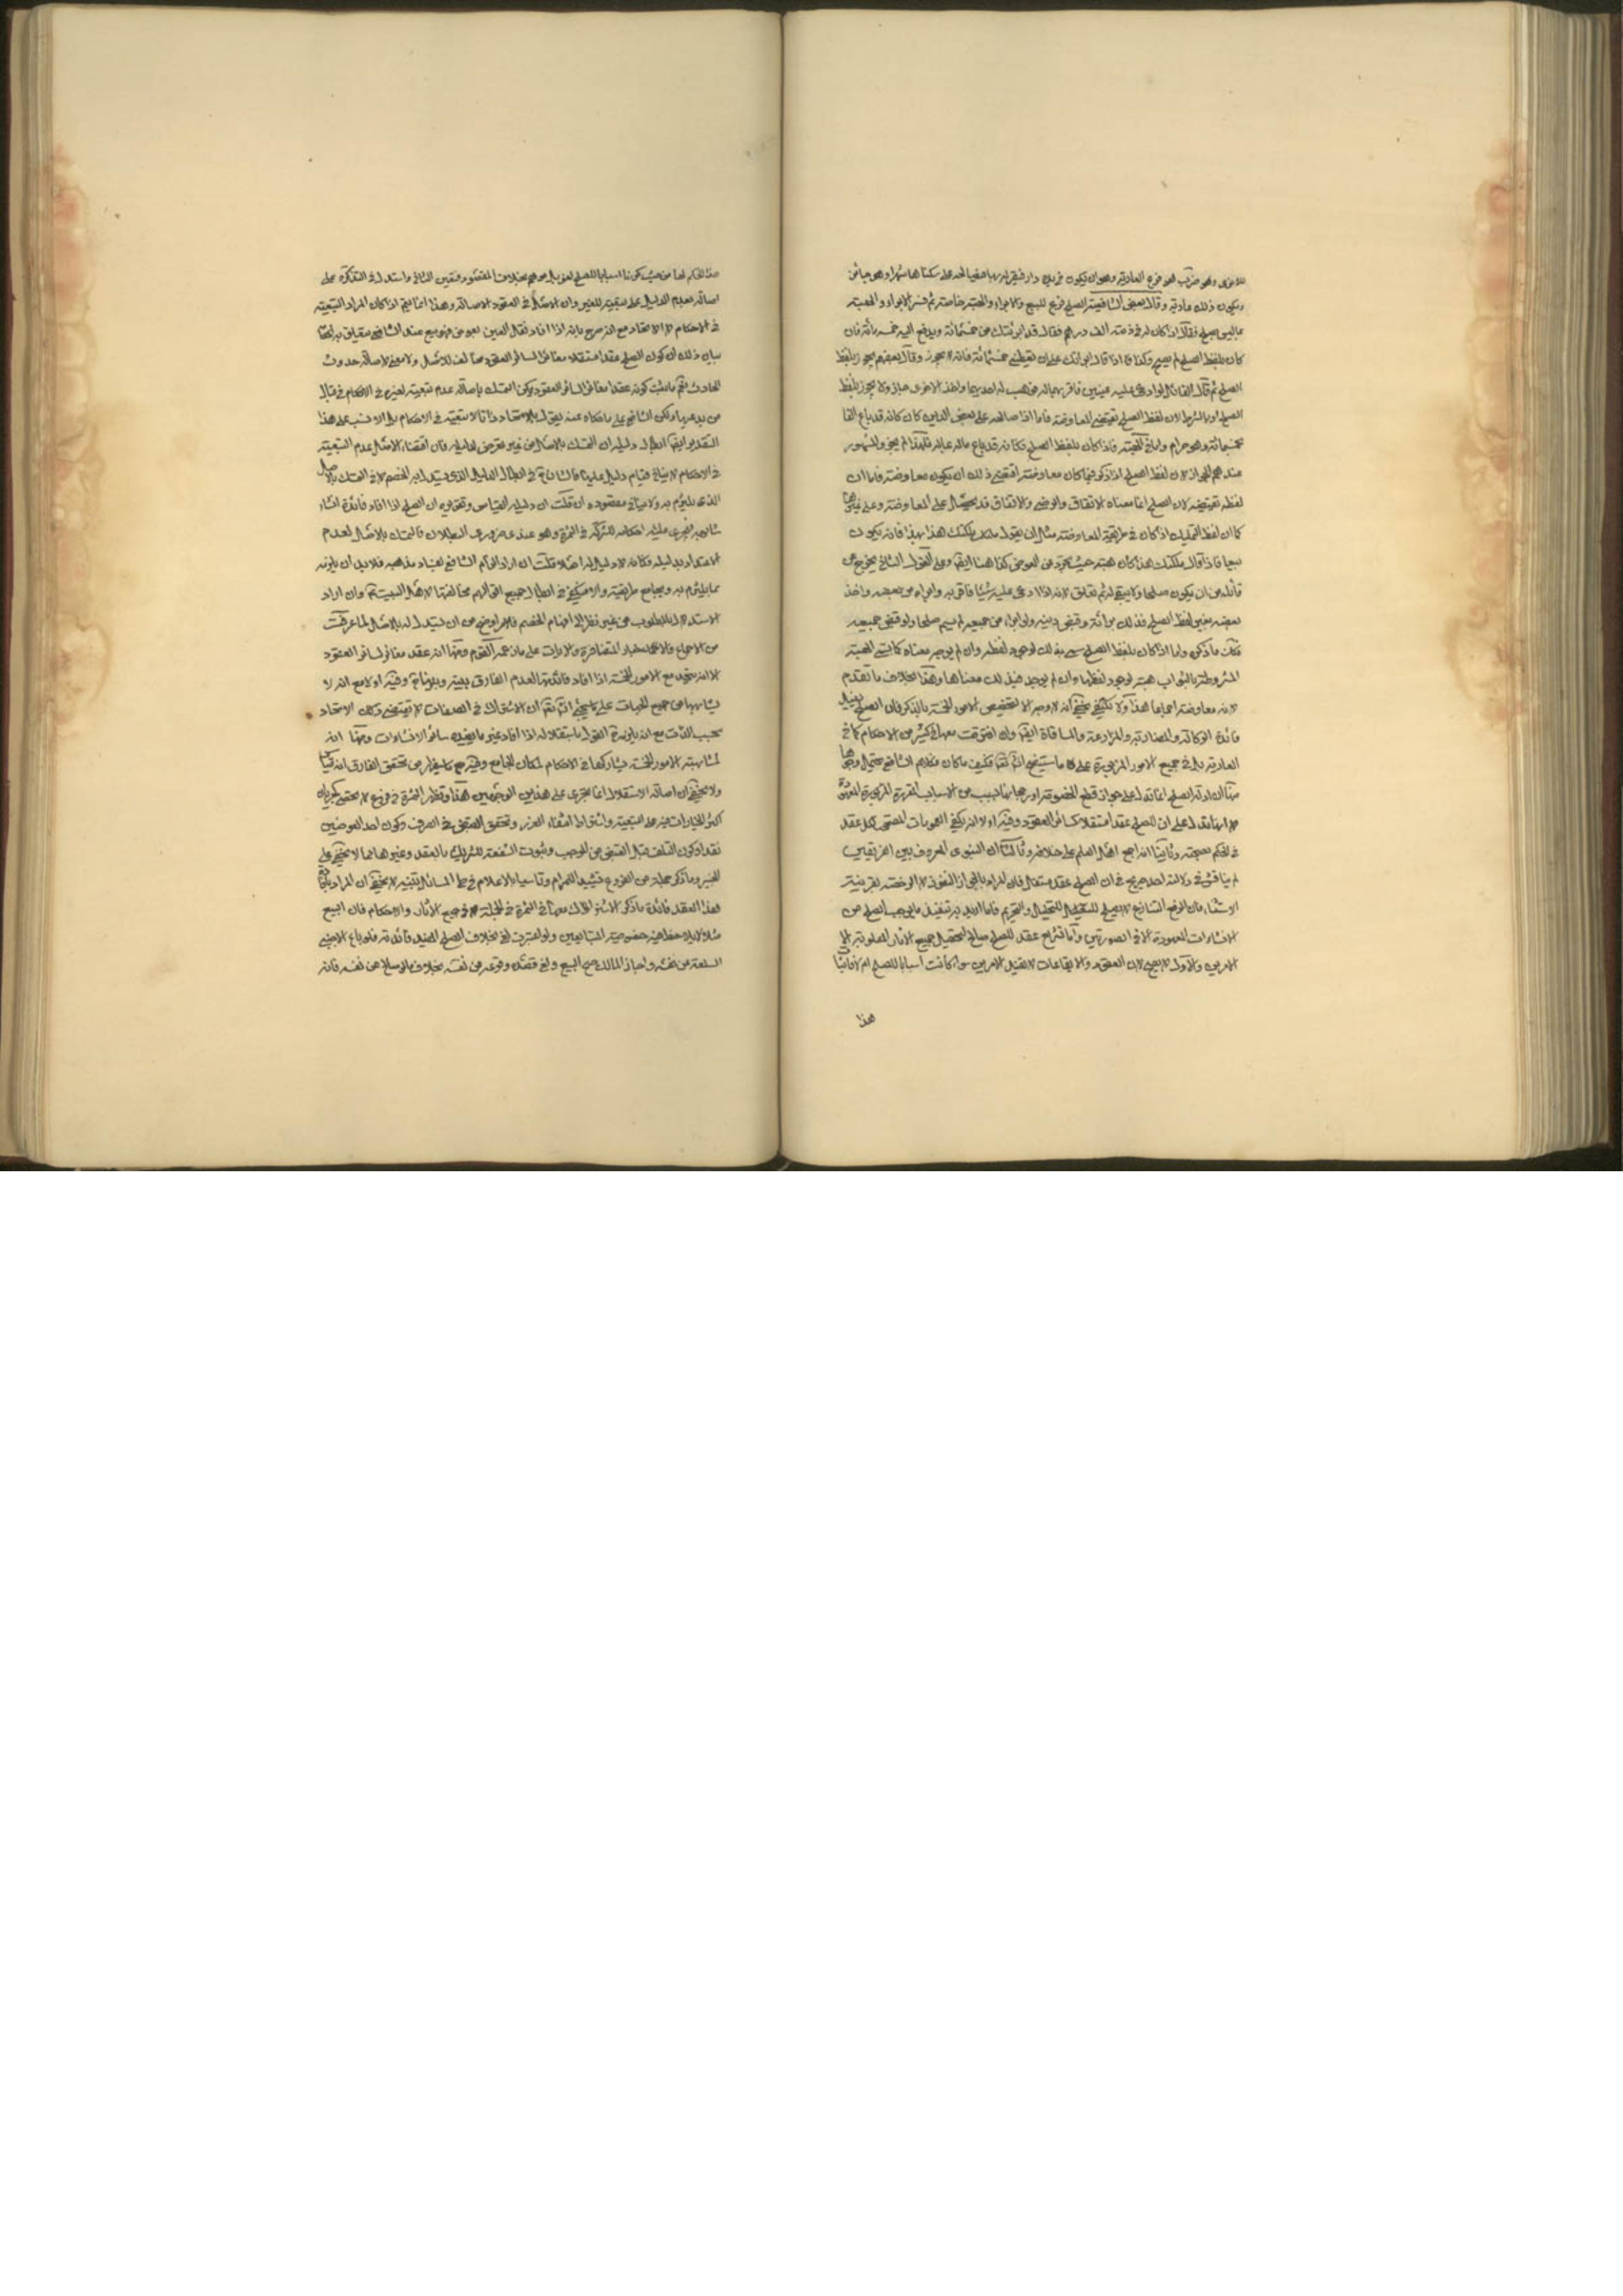 وهو ضرب هو فرع العارية وهو ان يكون في يده دار فيقر له بها فيصالحه على سكناها شهرا وهو جائز
ويكون ذلك عارية وقال بعض الشافعية الصلح فرع للبيع والابراء والهبة خاصة ثم فسر الابراء والهبة
بما ليس بصلح فقال اذا كان له في ذمته الف درهم فقال قد ابرئتك من خمسمائة ويدفع اليه خمسمائة فان
كان بلفظ الصلح لم يصح وكذا اذا قال ابرئتك على ان تعطيني خمسمائة فانه لا يجوز وقال بعضهم يجوز بلفظ
الصلح ثم قال القائل لو ادعى عليه عينين فاقر بهما له فوهب له احديهما واخذ الاخرى جاز ولا يجوز بلفظ
الصلح او بالشرط لان لفظ الصلح يقتضي المعاوضة فاما اذا صالحه على بعض الدين كان كانه قد باع الفا
بخمسمائة وهو حرام واما في الهبة فاذا كان بلفظ الصلح فكانه قد باع ماله بماله فلهذا لم يجز والمشهور
عندهم الجواز لان لفظ الصلح اذا ذكر فيما كان معاوضة اقتضى ذلك ان يكون معاوضة فاما ان
لفظه تقتضيه لان الصلح انما معناه الاتفاق والرضى والاتفاق قد يحصل على المعاوضة وعلى غيرها
كما ان لفظ التمليك اذا كان في طريقة المعاوضة مثل ان يقول ملكتك هذا بهذا فانه يكون
بيعا فاذا قال ملكتك هذا كان هبة حيث تجرد عن العوض كذا هنا ايضا وعلى القول الثاني يخرج عن
ان يكون صلحا ولا يبقى له ثم تعلق لانه اذا ادعى عليه شيئا فاقر به وابراه من بعضه واخذ
بعضه بغير لفظ الصلح فذلك براءة وقبض دينه ولو ابراه من جميعه لم يسم صلحا ولو قبض جميعه
فكان ما ذكر واما اذا كان بلفظ الصلح سمي بذلك لوجود لفظه وان لم يوجد معناه كما يسمى الهبة
المشروطة بالثواب هبة لوجود لفظها وان لم يوجد فيها ذلك معناها وهذا بخلاف ما تقدم
لانه معاوضة اجماعا هذا ولا يخفى انه لا وجه لتخصيص الامور الخمسة بالذكر فان الصلح يفيد
فائدة الوكالة والمضاربة والمزارعة والمساقاة ايضا وان افترقت معها في كثير من الاحكام كما في
العارية بل في جميع الامور المزبورة على ما ستتضح انشاء الله تعالى فكيف ما كان فكلام الشافعي يحتمل وجوها
منها ان ادلة الصلح انما تدل على جواز قطع الخصومة او رجحانها بسبب من الاسباب المقررة المزبورة المعروفة
لا انها تدل على ان الصلح عقد مستقل كسائر العقود وفيه اولا انه يكفي العمومات المصححة لكل عقد
في الحكم بصحته وثانيا انه اجمع اهل العلم على خلافه وثالثا ان النبوي المعروف بين الفريقين
لم يناقش في دلالته احد صريح في ان الصلح عقد مستقل فان المراد بالجواز النفوذ لا الرخصة بقرينة
الاستثناء فان الوضع الشارع لا يصلح للتحليل والتحريم فاما اريد به تنفيذ ما يوجب الصلح من
الانشاءات المعهودة الا في الصورتين واما تشريع عقد للصلح صالح لتحصيل جميع الاثار المطلوبة الى
الامرين والاول لا يصح لان العقود والايقاعات لا تفيد الامرين سواء كانت اسبابا للصلح ام لا وثانيا
هذا
هذا الحكم لها من حيث كونها اسبابا للصلح لغو بل موهم بخلاف المقصود فتعين الثاني واستدل في التذكرة على
اصالته بعدم الدليل على تبعيته للغير وان الاصل في العقود الاصالة وهذا انما يتم اذا كان المراد التبعية
في الاحكام لا الاتحاد مع انه صرح بانه اذا افاد نقل العين بعوض فهو بيع عند الشافعي يتعلق به احكامه
بيان ذلك ان كون الصلح عقدا مستقلا مغايرا لسائر العقود مخالف للاصل ولا معنى لاصالة حدوث
الحادث نعم ما ثبت كونه عقدا مغايرا لسائر العقود يمكن التمسك باصالة عدم تبعيته لغيره في الاحكام في قبال
من يدعيها ولكن الشافعي على ما حكاه عنه يقول بالاتحاد ذاتا لا التبعية في الاحكام بل الانسب على هذا
التقدير ايضا ابطال دليله لان التمسك بالاصل من غير تعرض لدليله فان اقتضاء الاصل عدم التبعية
في الاحكام لا ينافي قيام دليل عليها فالشان في ابطال الدليل الذي يستدل به الخصم لا في التمسك بالاصل
الذي يلتزم به ولا ينافي مقصوده وان قلت ان دليله القياس وتقريره ان الصلح اذا افاد فائدة انشاء
شابهه فيجرى عليه احكامه للشركة في الثمرة وهو عندنا ضروري البطلان فالتمسك بالاصل لعدم
الاعتداد بدليله فكانه لا دليل له اصلا قلت ان اراد الزام الشافعي بفساد مذهبه فلا بد ان يلزمه
بما يلتزم به ويجامع طريقته والا فيكفي في ابطال جميع اقوالهم مخالفتها لاهل البيت ع وان اراد
الاستدلال للمطلوب من غير نظر الى افهام الخصم فالامر اوضح من ان يستدل له بالاصل لما عرفت
من الاجماع والاخبار المتضافرة والايات على ما زعمه القوم ومنها انه عقد مغاير لسائر العقود
الا انه يتحد مع الامور الخمسة اذا افاد فائدتها لعدم الفارق بينه وبينها وفيه اولا مع انه لا
يشابهها من جميع الجهات على ما سيجيء انشاء الله تعالى ان الاشتراك في الصفات لا يقتضي ذلك الاتحاد
بحسب الذات مع انه يلزمه القول باستقلاله اذا افاد غير ما يفيده سائر الانشاءات ومنها انه
لمشابهته الامور الخمسة يشاركها في الاحكام لمكان الجامع وفيه مع ما يظهر من تحقق الفارق انه قياس
ولا يخفى ان اصالة الاستقلال انما تجرى على هذين الوجهين هذا وتظهر الثمرة في فروع لا تحصى كجريان
اكثر الخيارات فيه على التبعية واشتراط انتفاء الغرر وتحقق القبض في الصرف وكون احد العوضين
نقدا وكون التلف قبل القبض من الموجب وثبوت الشفعة للشريك بالعقد وغيرها مما لا يخفى على
الخبير وما ذكر جملة من الفروع تشييدا للمرام وتاسيا بالاعلام في طي المسائل تنبيه لا يخفى ان المراد بافادة
هذا العقد فائدة ما ذكر الاشتراك معها في الثمرة في الجملة لا في جميع الاثار والاحكام فان البيع
مثلا لا يلاحظ فيه خصوصية المتبايعين ولو اعتبرت لغى بخلاف الصلح المفيد فائدته فلو باع الاجنبي
السلعة من نفسه واجاز المالك صح البيع ولغى قصده وقوعه من نفسه بخلاف ما لو صالح عن نفسه فانه